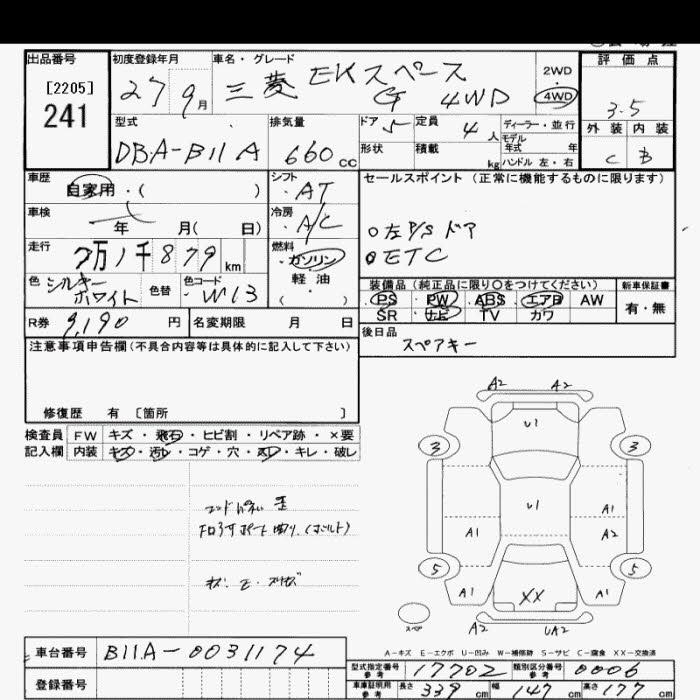 出品番号
[2205]
241
初度登録年月
27 9月
車名・グレード
三菱 EKスペース
G 4WD
2WD
4WD
評価点
3.5
外装 内装
C B
型式
DBA-B11A
排気量
660 cc
ドア 5
定員 4人
ディーラー・並行
モデル
年式 年
形状
積載 kg
ハンドル 左・右
車歴
自家用・( )
シフト
AT
セールスポイント (正常に機能するものに限ります)
○左P/Sドア
○ETC
車検
年 月( 日)
冷房
A/C
走行
7万1千879km
燃料
ガソリン
軽油
( )
色 シルキーホワイト
色替
色コード
W13
装備品 (純正品に限り○をつけてください)
新車保証書
PS PW ABS エアB AW
有・無
SR ナビ TV カワ
R券 9,190 円
名変期限 月 日
後日品
スペアキー
注意事項申告欄(不具合内容等は具体的に記入して下さい)
修復歴 有 〔箇所 〕
検査員 FW キズ・飛石・ヒビ割・リペア跡・×要
記入欄 内装 キズ・汚レ・コゲ・穴・スレ・キレ・破レ
A2 A2
U1
3 3
U1
A1
A1
A2
5 5
A1 A1
XX
スペア
A2 UA2
A-キズ E-エクボ U-凹み W-補修跡 S-サビ C-腐食 XX-交換済
車台番号 B11A-0031174
登録番号
型式指定番号 参考 17702
類別区分番号 参考 0006
車庫証明用 参考 長さ 339 cm 幅 147 cm 高さ 177 cm